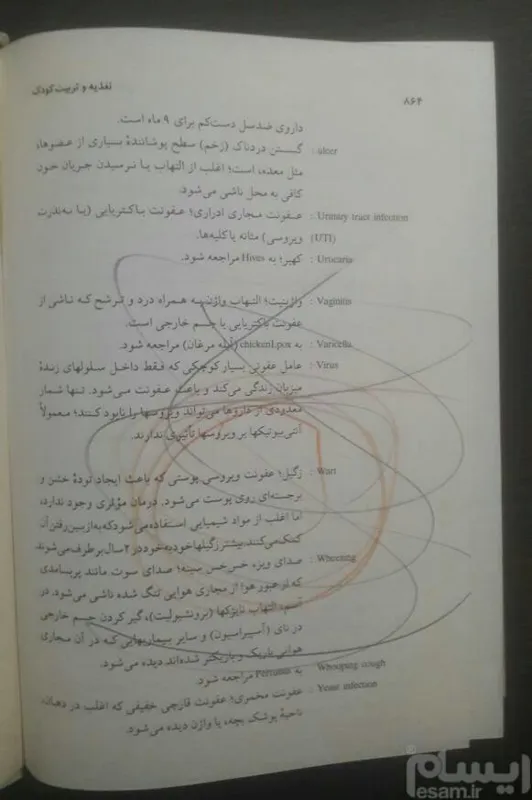 تغذیه و تربیت کودک
۸۶۴
داروی ضدسل دست‌کم برای ۹ ماه است.
ulcer : گسستن دردناک (زخم) سطح پوشانندهٔ بسیاری از عضوها،
مثل معده، است؛ اغلب از التهاب یا نرسیدن جریان خون
کافی به محل ناشی می‌شود.
Urinary tract infection : عفونت مجاری ادراری؛ عفونت باکتریایی (یا به‌ندرت
(UTI) ویروسی) مثانه یا کلیه‌ها.
Urticaria : کهیر؛ به Hives مراجعه شود.
Vaginitis : واژینیت؛ التهاب واژن به همراه درد و ترشح که ناشی از
عفونت باکتریایی یا جسم خارجی است.
Varicella : به chickenLpox (آبله مرغان) مراجعه شود.
Virus : عامل عفونی بسیار کوچکی که فقط داخل سلولهای زندهٔ
میزبان زندگی می‌کند و باعث عفونت می‌شود. تنها شمار
معدودی از داروها می‌تواند ویروسها را نابود کنند؛ معمولاً
آنتی‌بیوتیکها بر ویروسها تأثیری ندارند.
Wart : زگیل؛ عفونت ویروسی پوستی که باعث ایجاد تودهٔ خشن و
برجسته‌ای روی پوست می‌شود. درمان مؤثری وجود ندارد،
اما اغلب از مواد شیمیایی استفاده می‌شود که به از بین رفتن آن
کمک می‌کنند. بیشتر زگیلها خود به خود در ۲ سال برطرف می‌شوند
Wheezing : صدای ویژه خس‌خس سینه؛ صدای سوت مانند پربسامدی
که از عبور هوا از مجاری هوایی تنگ شده ناشی می‌شود. در
آسم، التهاب نایژکها (برونشیولیت)، گیر کردن جسم خارجی
در نای (آسپیراسیون) و سایر بیماریهایی که در آن مجاری
هوایی باریک و باریکتر شده‌اند، دیده می‌شود.
Whooping cough : به Pertussis مراجعه شود.
Yeast infection : عفونت مخمری؛ عفونت قارچی خفیفی که اغلب در دهان،
ناحیهٔ پوشک بچه، یا واژن دیده می‌شود.
ایسام
esam.ir